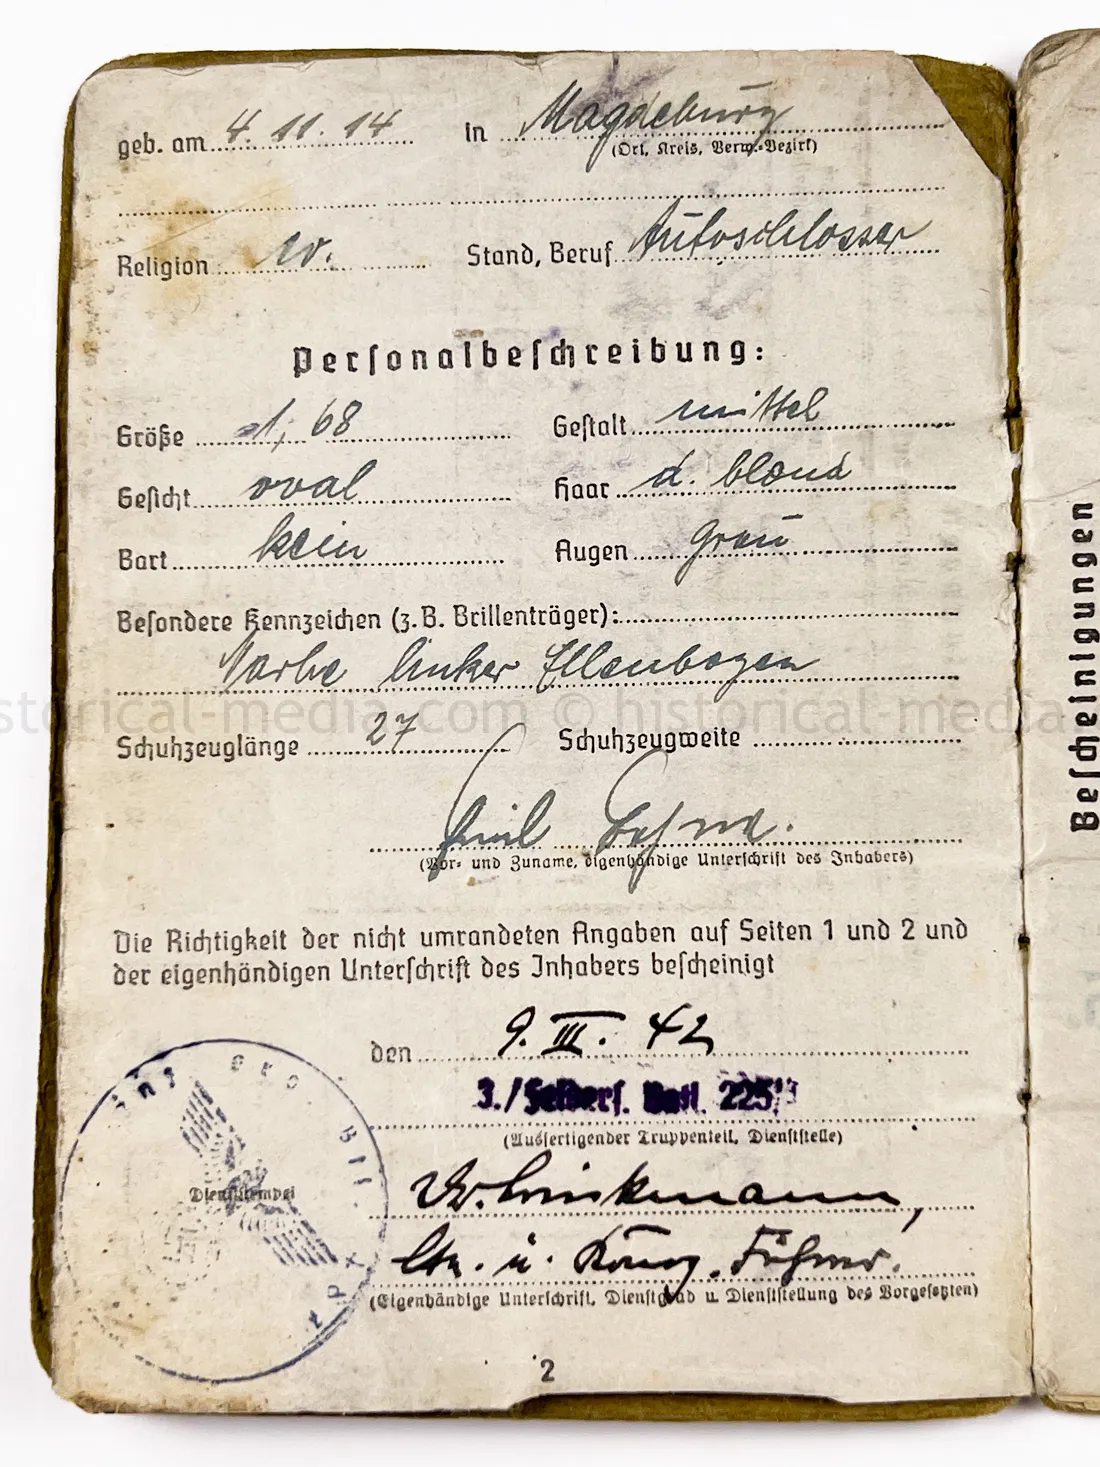 geb. am 4. 11. 14 in Magdeburg
(Ort, Kreis, Verw.-Bezirk)
Religion Stand, Beruf Autoschlosser
Personalbeschreibung:
Größe 1,68 Gestalt mittel
Gesicht oval Haar d. blond
Bart kein Augen grau
Besondere Kennzeichen (z. B. Brillenträger):
Narbe linker Ellenbogen
historical-media.com © historical-media
Schuhzeuglänge 27 Schuhzeugweite
Emil
(Vor- und Zuname, eigenhändige Unterschrift des Inhabers)
Die Richtigkeit der nicht umrandeten Angaben auf Seiten 1 und 2 und
der eigenhändigen Unterschrift des Inhabers bescheinigt
den 9. III. 42
3./Felders. Batl. 225/3
(Ausfertigender Truppenteil, Dienststelle)
Dienststempel
Brinkmann,
Ltn. u. Komp. Führer.
(Eigenhändige Unterschrift, Dienstgrad u. Dienststellung des Vorgesetzten)
2
Bescheinigungen